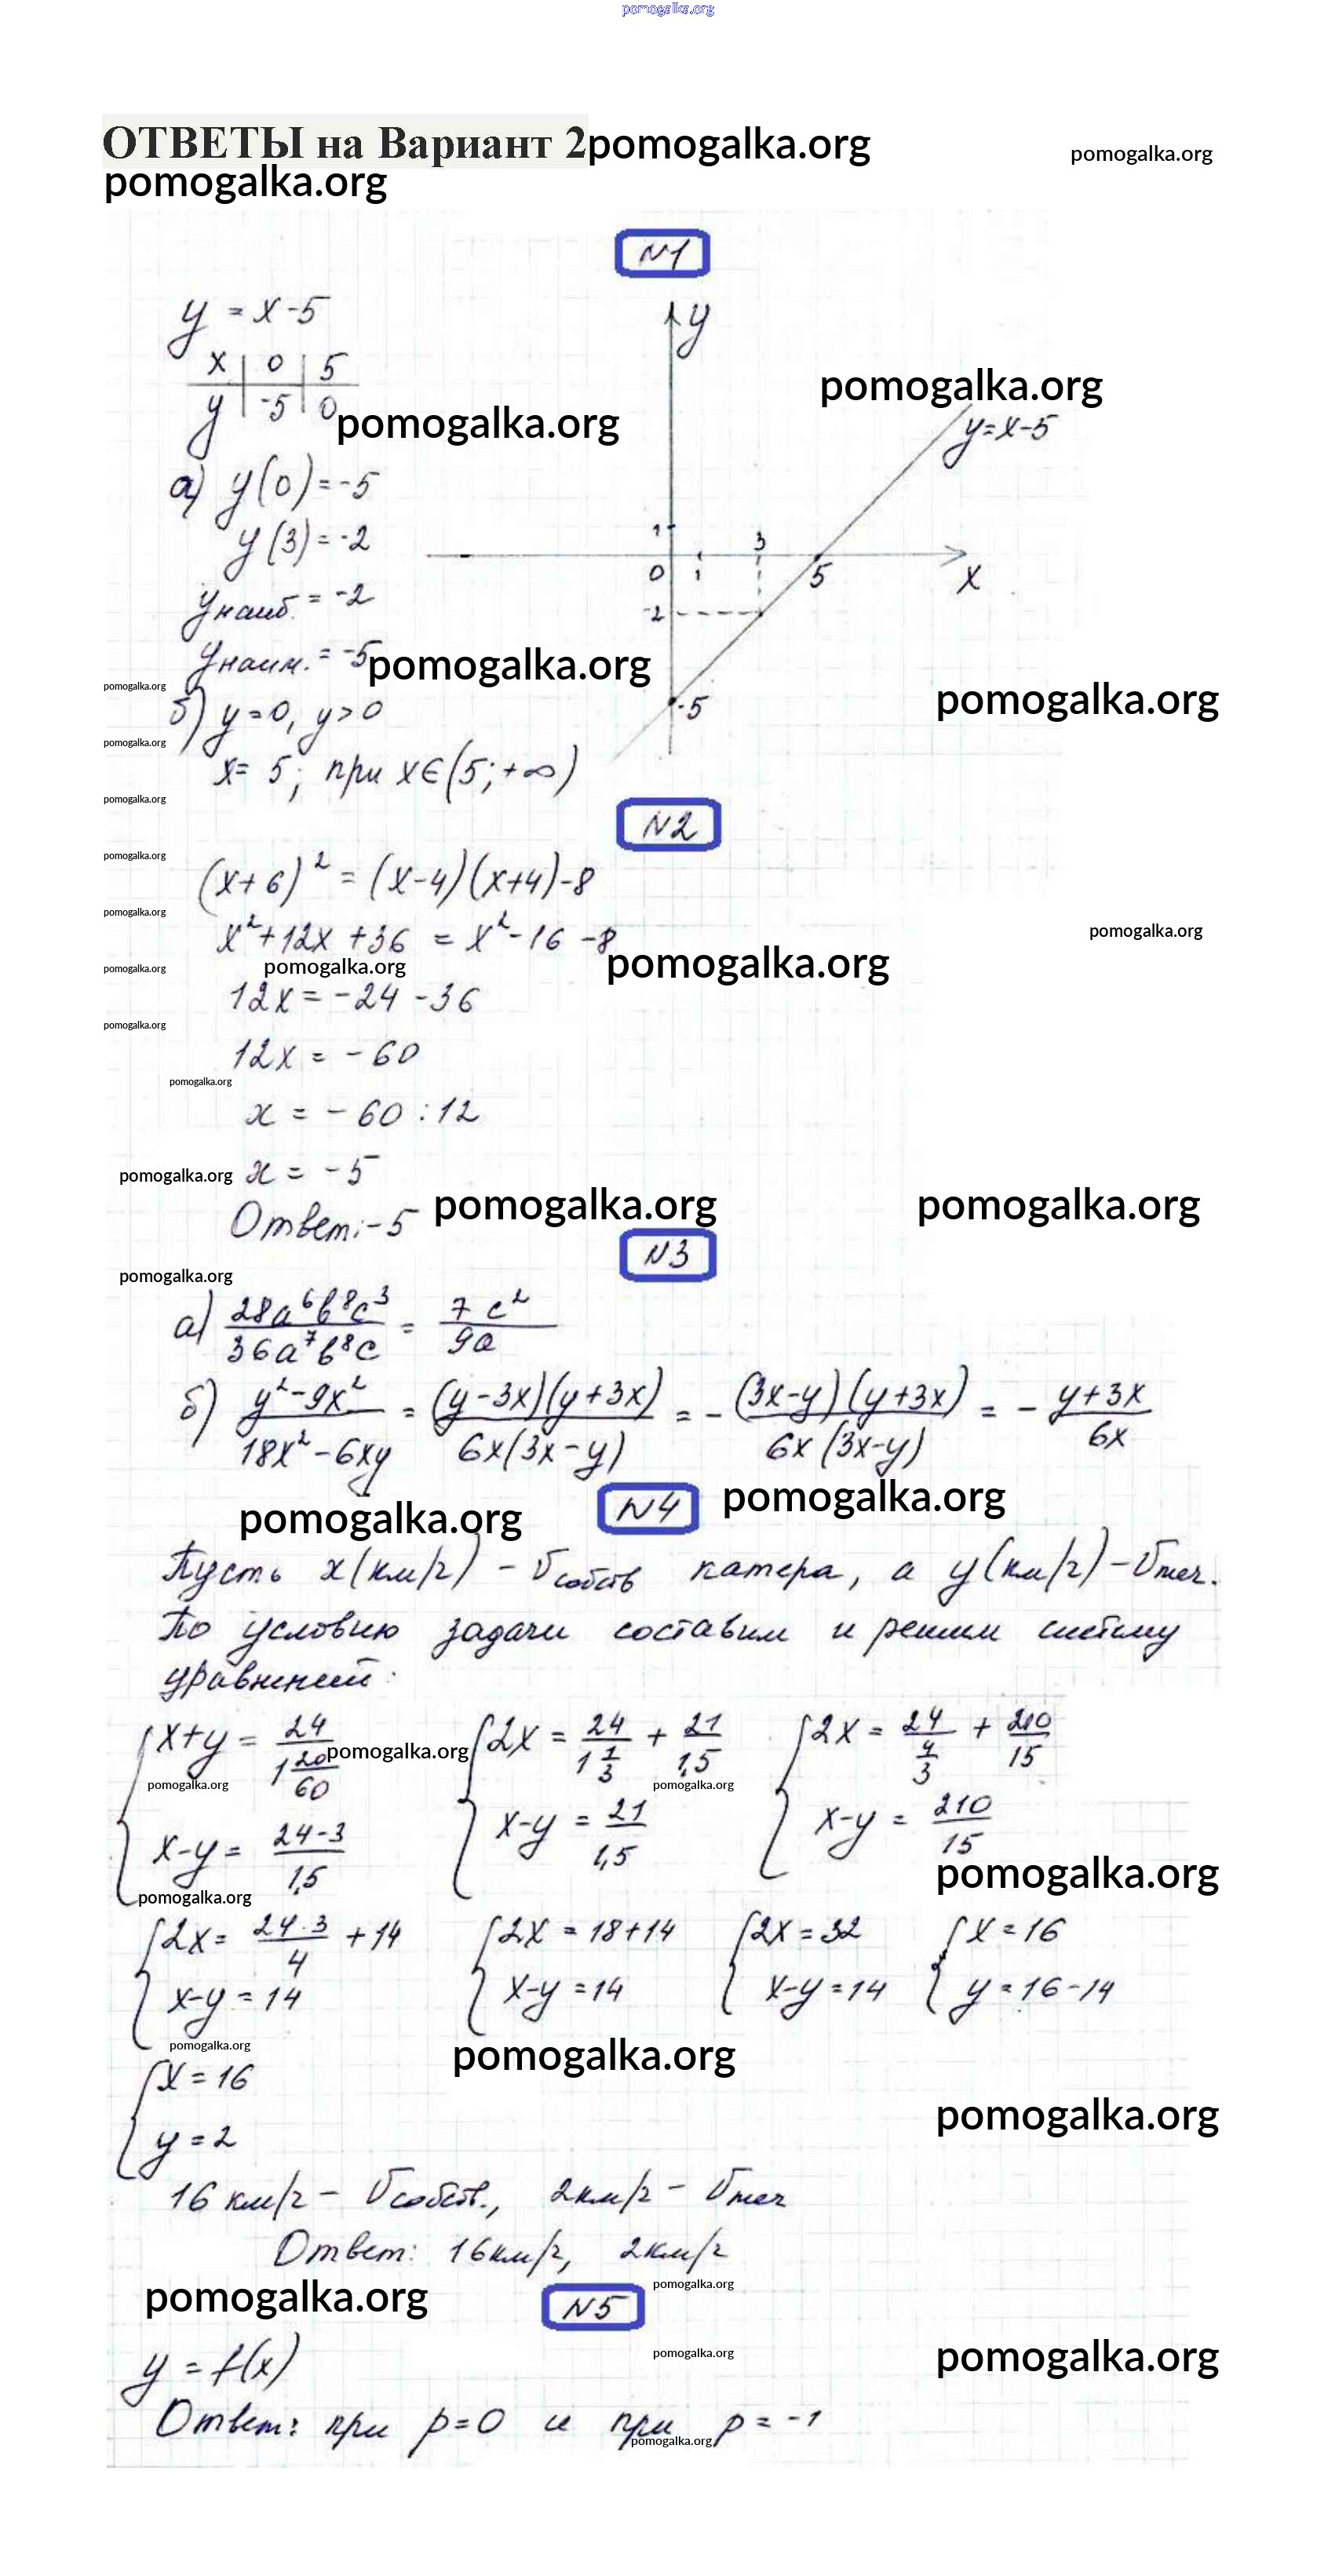 pomogalka.org
ОТВЕТЫ на Вариант 2pomogalka.org
pomogalka.org
pomogalka.org
N1
y = x-5
x | 0 | 5
y | -5 | 0
pomogalka.org
y
pomogalka.org
y=x-5
а) y(0)=-5
y(3)=-2
1
3
0
1
5
x
-2
yнаиб. = -2
yнаим. = -5
pomogalka.org
pomogalka.org
pomogalka.org
-5
б) y=0, y>0
pomogalka.org
x= 5; при x∈(5;+∞)
pomogalka.org
N2
pomogalka.org
(x+6)² = (x-4)(x+4)-8
pomogalka.org
x²+12x+36 = x²-16-8
pomogalka.org
pomogalka.org
pomogalka.org
pomogalka.org
12x = -24-36
pomogalka.org
12x = -60
pomogalka.org
x = -60:12
pomogalka.org
x = -5
Ответ: -5
pomogalka.org
pomogalka.org
N3
pomogalka.org
а) 28a⁶b⁸c³/36a⁷b⁸c = 7c²/9a
б) y²-9x²/18x²-6xy = (y-3x)(y+3x)/6x(3x-y) = -(3x-y)(y+3x)/6x(3x-y) = -y+3x/6x
pomogalka.org
N4
pomogalka.org
Пусть x(км/ч) - Vсобств катера, а y(км/ч)-Vтеч.
По условию задачи составим и решим систему
уравнений:
{x+y = 24/1 20/60
pomogalka.org
{2x = 24/1 1/3 + 21/1,5
{2x = 24/4/3 + 210/15
pomogalka.org
pomogalka.org
x-y = 24-3/1,5
x-y = 21/1,5
x-y = 210/15
pomogalka.org
pomogalka.org
{2x = 24·3/4 + 14
{2x = 18+14
{2x = 32
{x = 16
x-y = 14
x-y = 14
x-y = 14
y = 16-14
pomogalka.org
pomogalka.org
{x = 16
pomogalka.org
y = 2
16 км/ч - Vсобств., 2км/ч - Vтеч
Ответ: 16км/ч, 2км/ч
pomogalka.org
pomogalka.org
N5
pomogalka.org
pomogalka.org
y = f(x)
Ответ: при p=0 и при p=-1
pomogalka.org